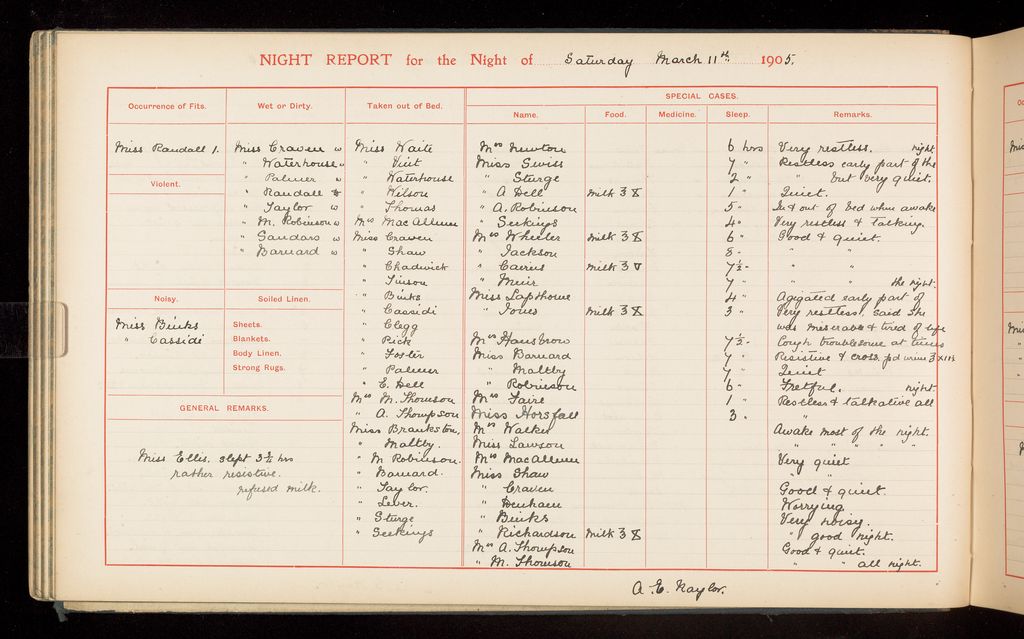 NIGHT REPORT for the Night of Saturday March 11th 1905.
Occurrence of Fits.
Miss Randall 1.
Violent.
Noisy.
Miss Binks
" Cassidi
Wet or Dirty.
Miss Craven w
" Waterhouse w
" Palmer w
" Randall
" Taylor w
" M. Robinson w
" Sandars w
" Barnard w
Soiled Linen.
Sheets.
Blankets.
Body Linen.
Strong Rugs.
GENERAL REMARKS.
Miss Ellis. slept 3½ hrs
rather resistive.
refused milk.
Taken out of Bed.
Miss Waite
" Vint
" Waterhouse
" Wilson
" Thomas
Mrs MacAllum
Miss Craven
" Shaw
" Chadwick
"
" Binks
" Cassidi
" Clegg
" Rick
" Foster
" Palmer
" E. Hell
Mrs M. Thomson
" A. Thompson
Miss Brankston.
" Maltby.
" M Robinson.
" Barnard.
" Taylor.
" Lever.
" Sturge
" Seekings
SPECIAL CASES.
Name. Food. Medicine. Sleep. Remarks.
Mrs Newton 6 hrs Very restless. night.
Miss Swiss 7 " Restless early part of the
" Sturge 2 " " but very quiet.
" A Hell Milk 1 " Quiet.
" A. Robinson 5 " In & out of bed when awake
" Seekings 4 " Very restless & talking.
Mrs Wheeler Milk 6 " Good & quiet.
" Jackson 8 " " "
" Cairns Milk 7½ " " "
" Muir 7 " " " the night.
Miss Lapthorne 4 " Agigated early part of
" Jones Milk 3 " Very restless. said she
was meserable & tired of life
Mrs Hansbrow 7½ " Cough troublesome at times
Miss Barnard 7 " Resistive & cross.
" Maltby 7 " Quiet
" Robinson 6 " Fretful. night.
Mrs Faire 1 " Restless & talkative all
Miss Horsfall 3 " "
Mrs Walker Awake most of the night.
Miss Lawson " " " " "
Mrs MacAllum Very quiet
Miss Shaw " "
" Craven Good & quiet.
" Denham Worrying
" Binks Very noisy.
" Richardson Milk " good night.
Mrs A. Thompson Good & quiet.
" M. Thomson " " all night.
A. E. Naylor.